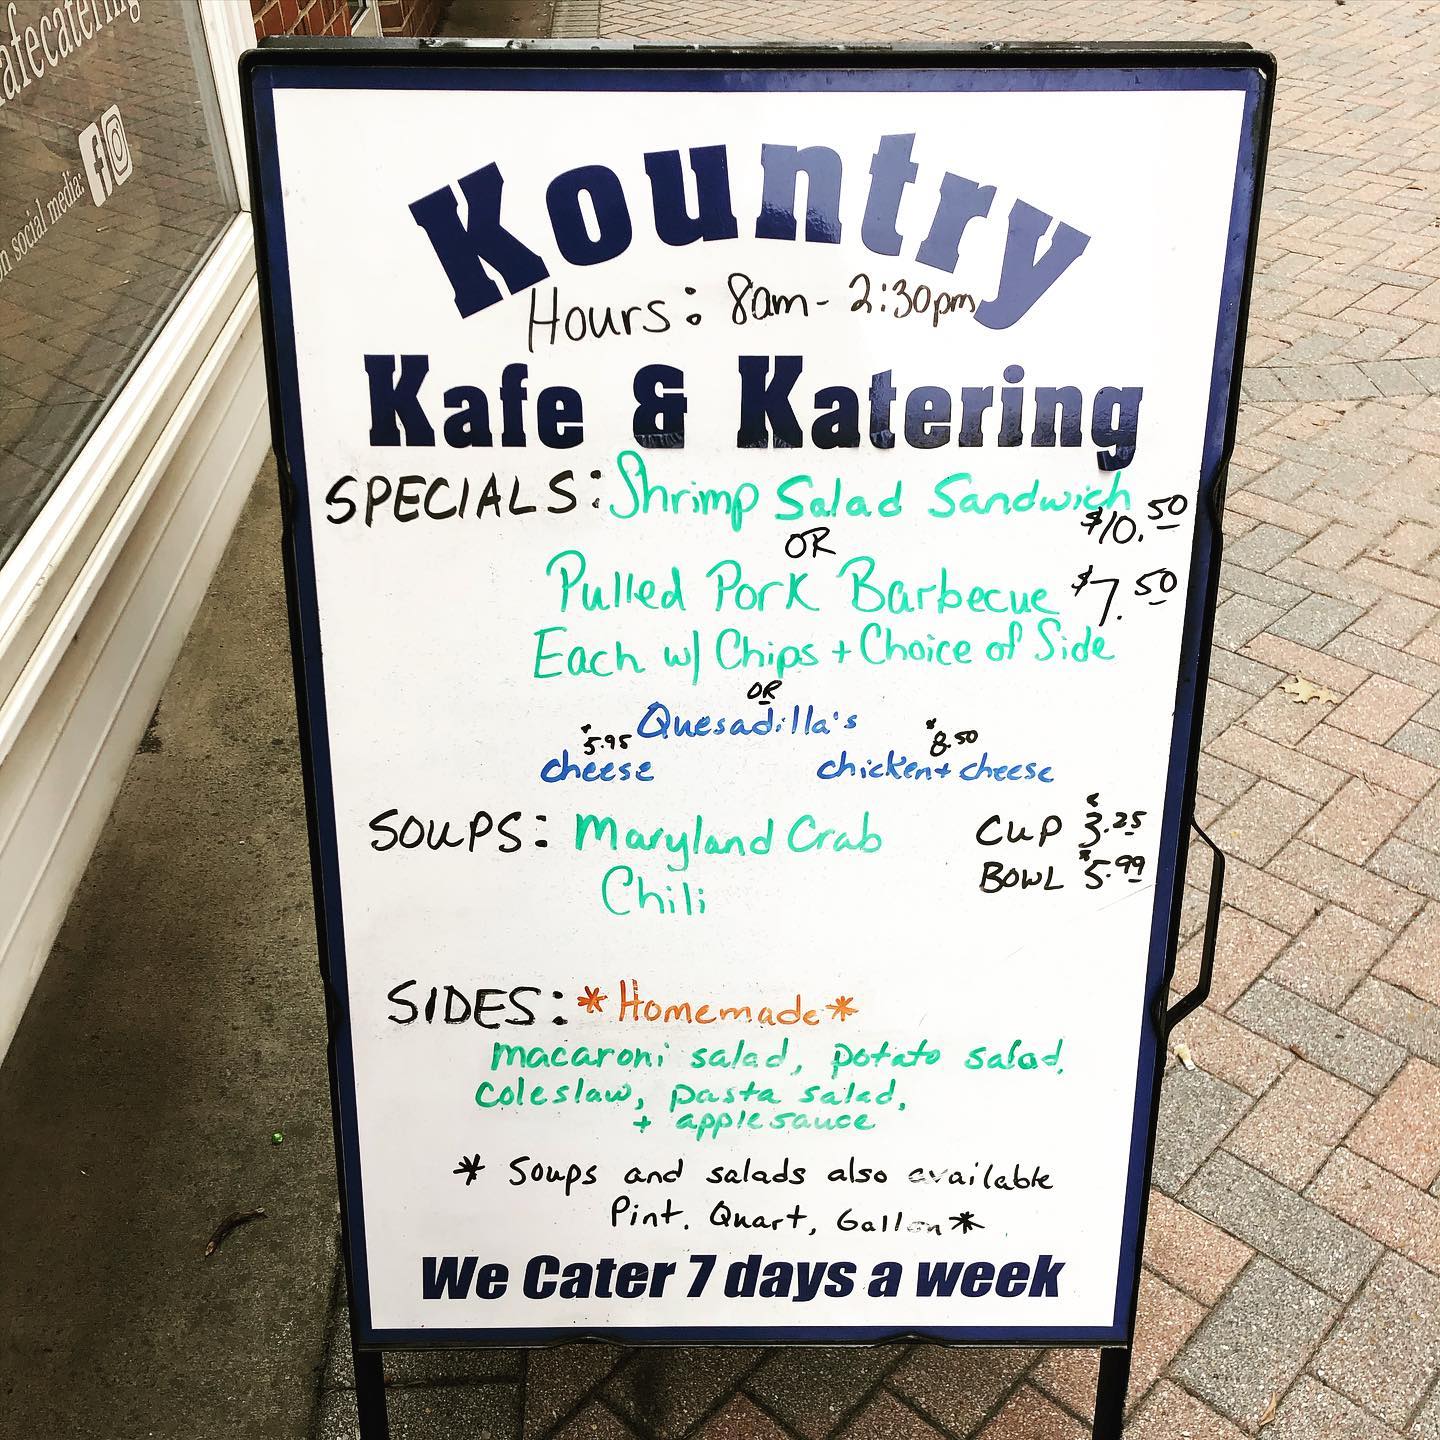 afecatering
on social media:
Kountry
Hours: 8am - 2:30pm
Kafe & Katering
SPECIALS: Shrimp Salad Sandwich $10.50
OR
Pulled Pork Barbecue $7.50
Each w/ Chips + Choice of Side
OR
Quesadilla's
$5.95 $8.50
cheese chicken + cheese
SOUPS: Maryland Crab CUP $3.25
Chili BOWL $5.99
SIDES: *Homemade*
macaroni salad, potato salad,
coleslaw, pasta salad,
+ applesauce
* Soups and salads also available
Pint, Quart, Gallon *
We Cater 7 days a week